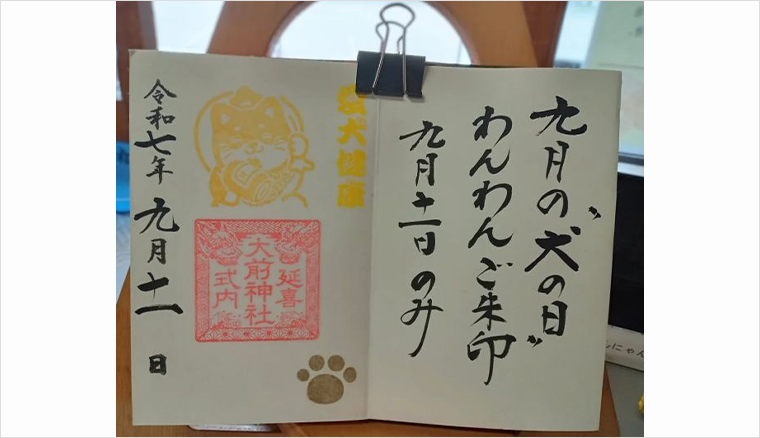 九月の〝犬の日〟
わんわんご朱印
九月十一日のみ
愛犬健康
延喜
大前神社
式内
令和七年九月十一日
にゃん